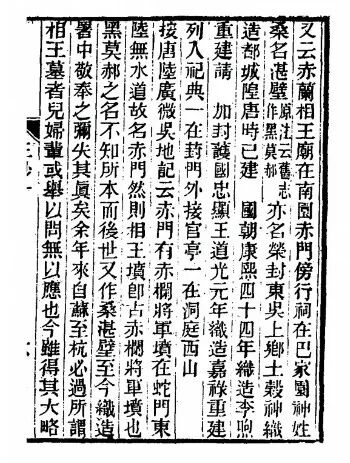 又云赤蘭相王廟在南園赤門傍行祠在巴家園神姓
桑名湛壁原注云舊志作黑莫郝亦名榮封東吳上鄉土穀神織
造都城隍唐時已建　國朝康熙四十四年織造李煦
重建請　加封護國忠顯王道光元年織造嘉祿重建
列入祀典一在葑門外接官亭一在洞庭西山
接唐陸廣微吳地記云赤門有赤欄將軍墳在蛇門東
陸無水道故名赤門然則相王墳卽古赤欄將軍墳也
黑莫郝之名不知所本而後世又作桑湛壁至今織造
署中敬奉之彌失其眞矣余年來自蘇至杭必過所謂
相王墓者兒婦輩或舉以問無以應也今雖得其大略